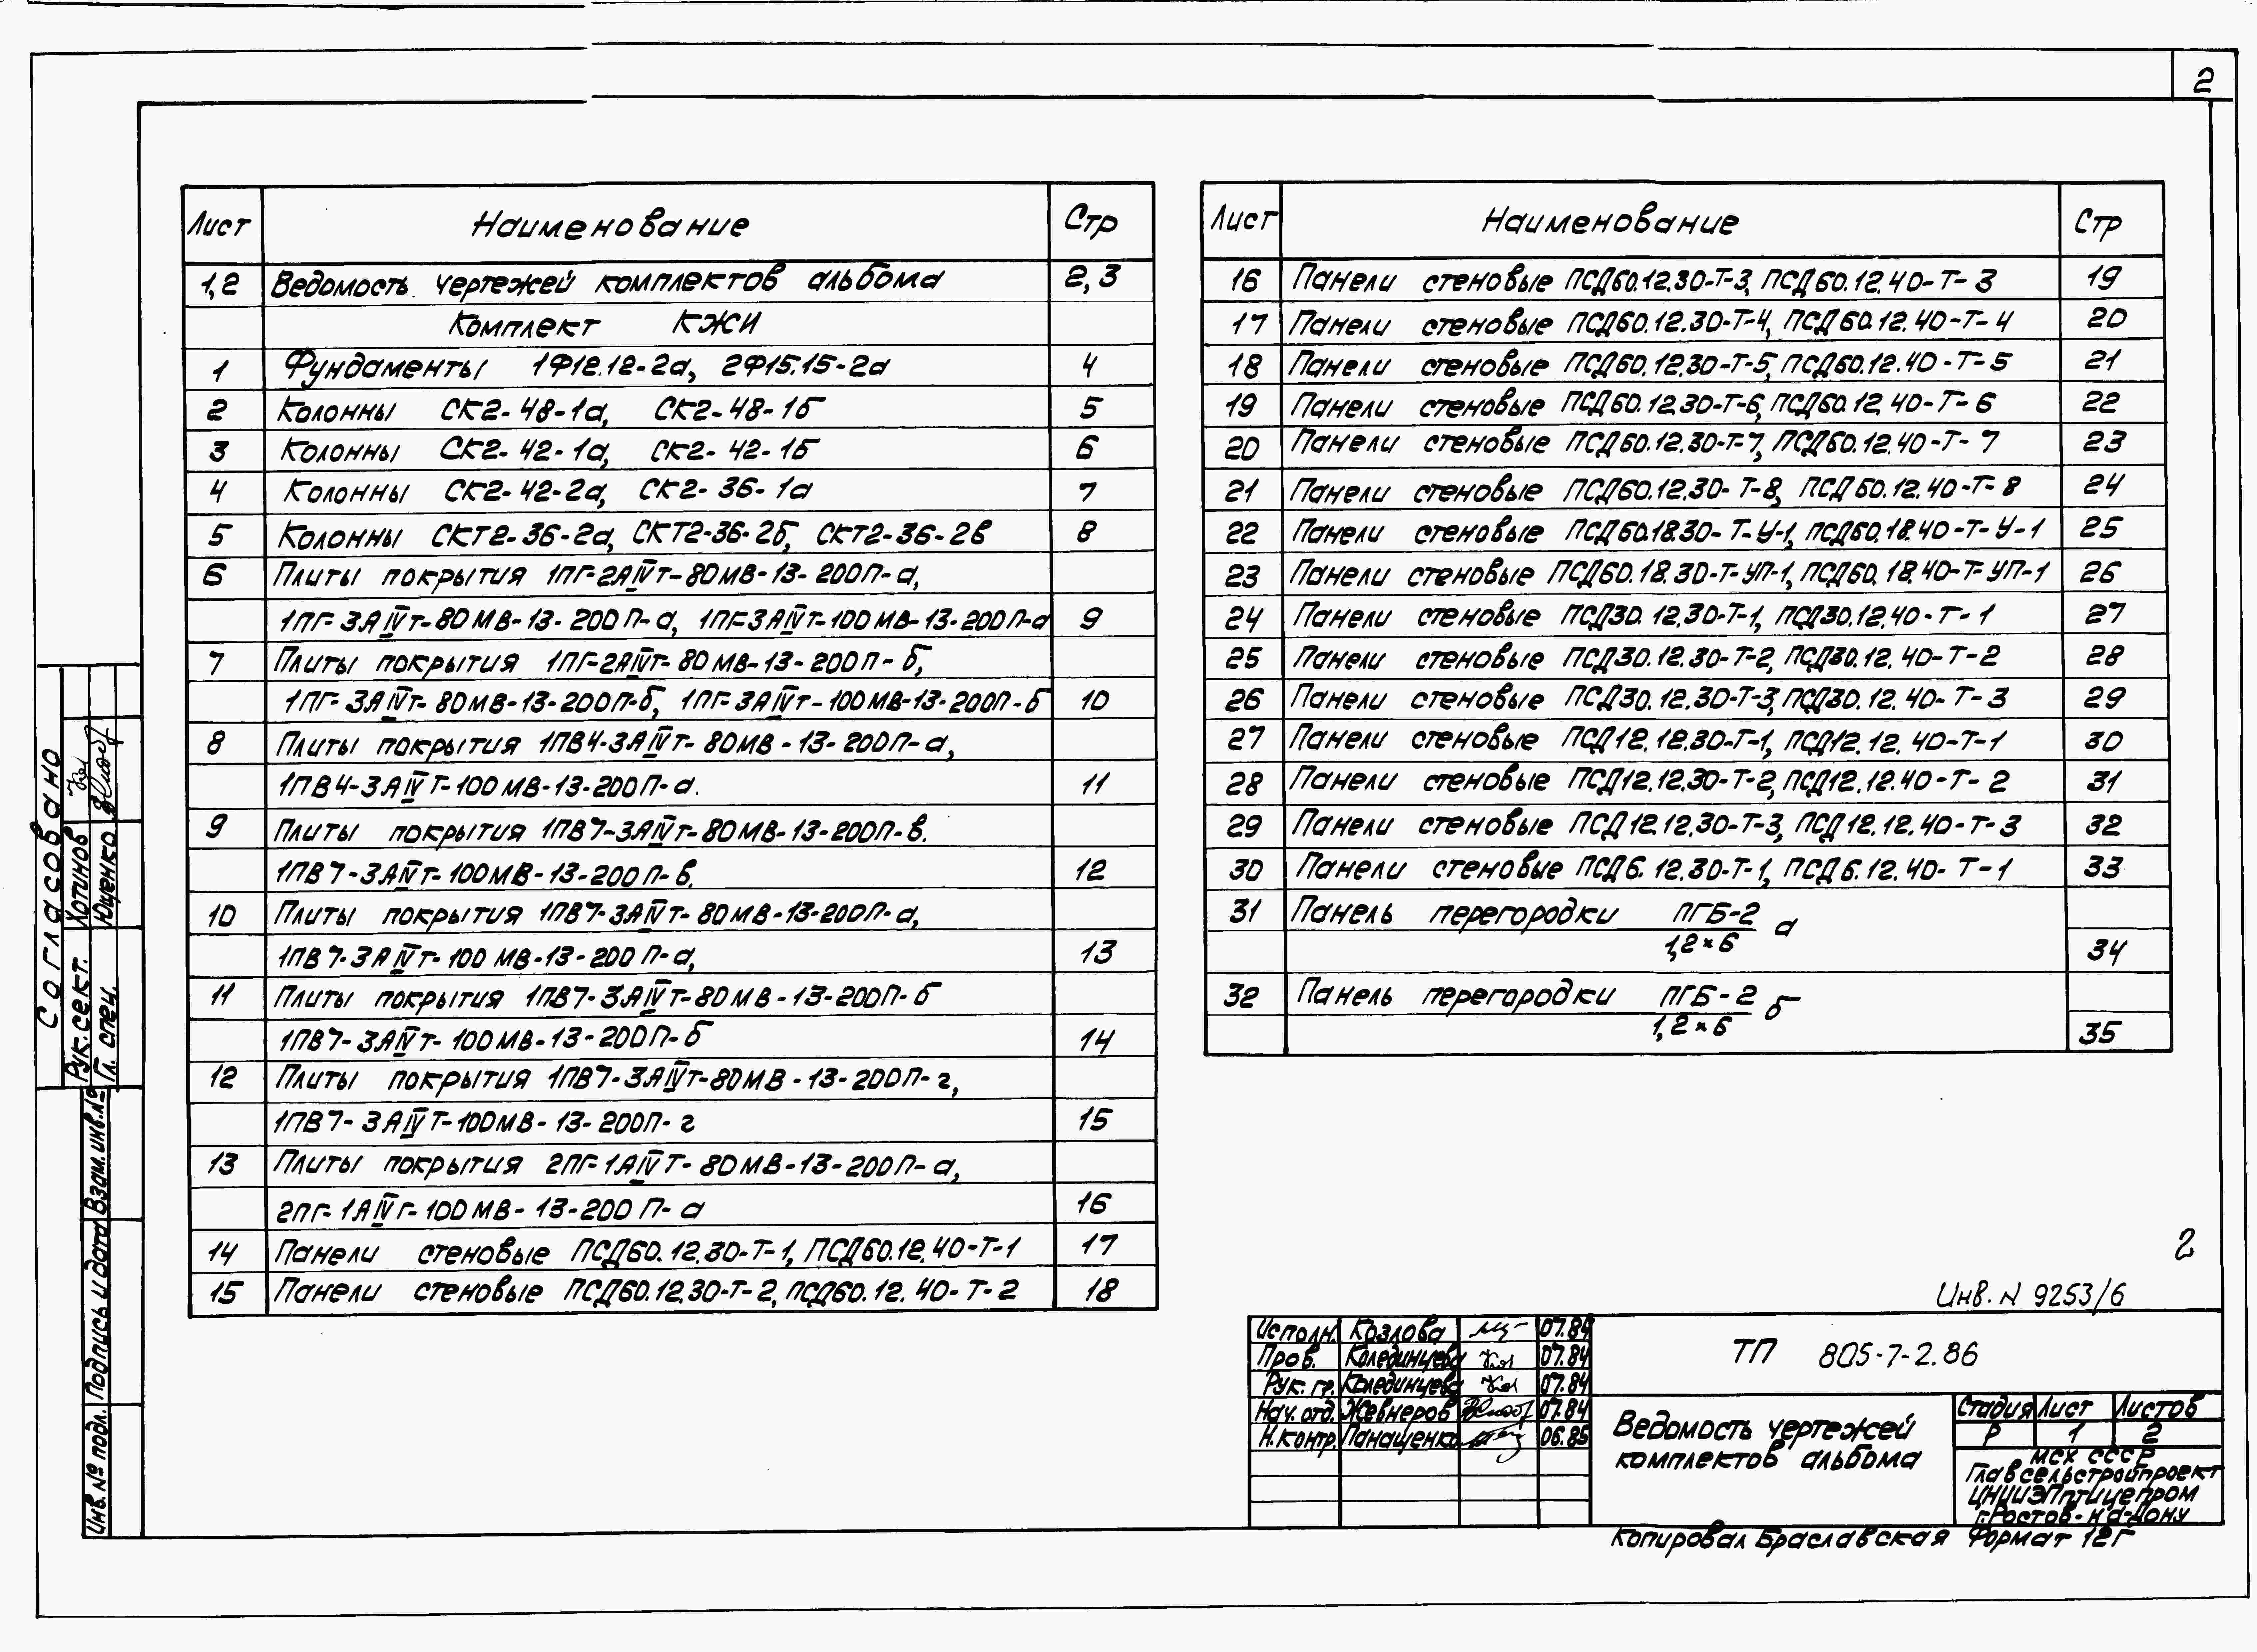 2
Лист Наименование Стр
1,2 Ведомость чертежей комплектов альбома 2,3
Комплект КЖИ
1 Фундаменты 1Ф12.12-2а, 2Ф15.15-2а 4
2 Колонны СК2-48-1а, СК2-48-1б 5
3 Колонны СК2-42-1а, СК2-42-1б 6
4 Колонны СК2-42-2а, СК2-36-1а 7
5 Колонны СКТ2-36-2а, СКТ2-36-2б, СКТ2-36-2в 8
6 Плиты покрытия 1ПГ-2АIVт-80МВ-13-200П-а,
1ПГ-3АIVт-80МВ-13-200П-а, 1ПГ-3АIVт-100МВ-13-200П-а 9
7 Плиты покрытия 1ПГ-2АIVт-80МВ-13-200П-б,
1ПГ-3АIVт-80МВ-13-200П-б, 1ПГ-3АIVт-100МВ-13-200П-б 10
8 Плиты покрытия 1ПВ4-3АIVт-80МВ-13-200П-а,
1ПВ4-3АIVт-100МВ-13-200П-а. 11
9 Плиты покрытия 1ПВ7-3АIVт-80МВ-13-200П-в.
1ПВ7-3АIVт-100МВ-13-200П-в. 12
10 Плиты покрытия 1ПВ7-3АIVт-80МВ-13-200П-а,
1ПВ7-3АIVт-100МВ-13-200П-а, 13
11 Плиты покрытия 1ПВ7-3АIVт-80МВ-13-200П-б
1ПВ7-3АIVт-100МВ-13-200П-б 14
12 Плиты покрытия 1ПВ7-3АIVт-80МВ-13-200П-г,
1ПВ7-3АIVт-100МВ-13-200П-г 15
13 Плиты покрытия 2ПГ-1АIVт-80МВ-13-200П-а,
2ПГ-1АIVт-100МВ-13-200П-а 16
14 Панели стеновые ПСД60.12.30-Т-1, ПСД60.12.40-Т-1 17
15 Панели стеновые ПСД60.12.30-Т-2, ПСД60.12.40-Т-2 18
Лист Наименование Стр
16 Панели стеновые ПСД60.12.30-Т-3, ПСД60.12.40-Т-3 19
17 Панели стеновые ПСД60.12.30-Т-4, ПСД60.12.40-Т-4 20
18 Панели стеновые ПСД60.12.30-Т-5, ПСД60.12.40-Т-5 21
19 Панели стеновые ПСД60.12.30-Т-6, ПСД60.12.40-Т-6 22
20 Панели стеновые ПСД60.12.30-Т-7, ПСД60.12.40-Т-7 23
21 Панели стеновые ПСД60.12.30-Т-8, ПСД60.12.40-Т-8 24
22 Панели стеновые ПСД60.18.30-Т-У-1, ПСД60.18.40-Т-У-1 25
23 Панели стеновые ПСД60.18.30-Т-УП-1, ПСД60.18.40-Т-УП-1 26
24 Панели стеновые ПСД30.12.30-Т-1, ПСД30.12.40-Т-1 27
25 Панели стеновые ПСД30.12.30-Т-2, ПСД30.12.40-Т-2 28
26 Панели стеновые ПСД30.12.30-Т-3, ПСД30.12.40-Т-3 29
27 Панели стеновые ПСД12.12.30-Т-1, ПСД12.12.40-Т-1 30
28 Панели стеновые ПСД12.12.30-Т-2, ПСД12.12.40-Т-2 31
29 Панели стеновые ПСД12.12.30-Т-3, ПСД12.12.40-Т-3 32
30 Панели стеновые ПСД6.12.30-Т-1, ПСД6.12.40-Т-1 33
31 Панель перегородки ПГБ-2 а
1,2×6 34
32 Панель перегородки ПГБ-2 б
1,2×6 35
2
Инв. N 9253/6
Исполн. Козлова 07.84
Пров. Колединцева 07.84
Рук. гр. Колединцева 07.84
Нач. отд. Жевнеров 07.84
Н. контр. Панащенко 06.85
ТП 805-7-2.86
Ведомость чертежей
комплектов альбома
Стадия Лист Листов
Р 1 2
МСХ СССР
Главсельстройпроект
ЦНИИЭПптицепром
г. Ростов-на-Дону
Копировал Браславская Формат 12Г
Согласовано
Рук. сект. Хотинов
Гл. спец. Ющенко
Взам. инв. №
Подпись и дата
Инв. № подл.